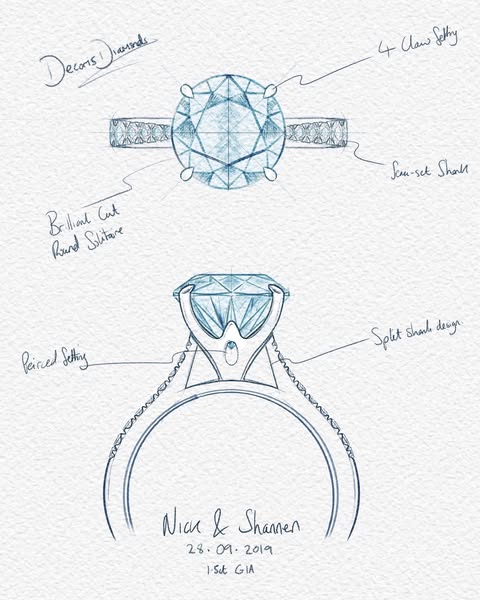 Decoris Diamonds
4 Claw Setting
Scu-set Shank
Brilliant Cut
Round Solitaire
Peirced Setting
Split Shank design.
Nick & Shannen
28.09.2019
1.5ct GIA